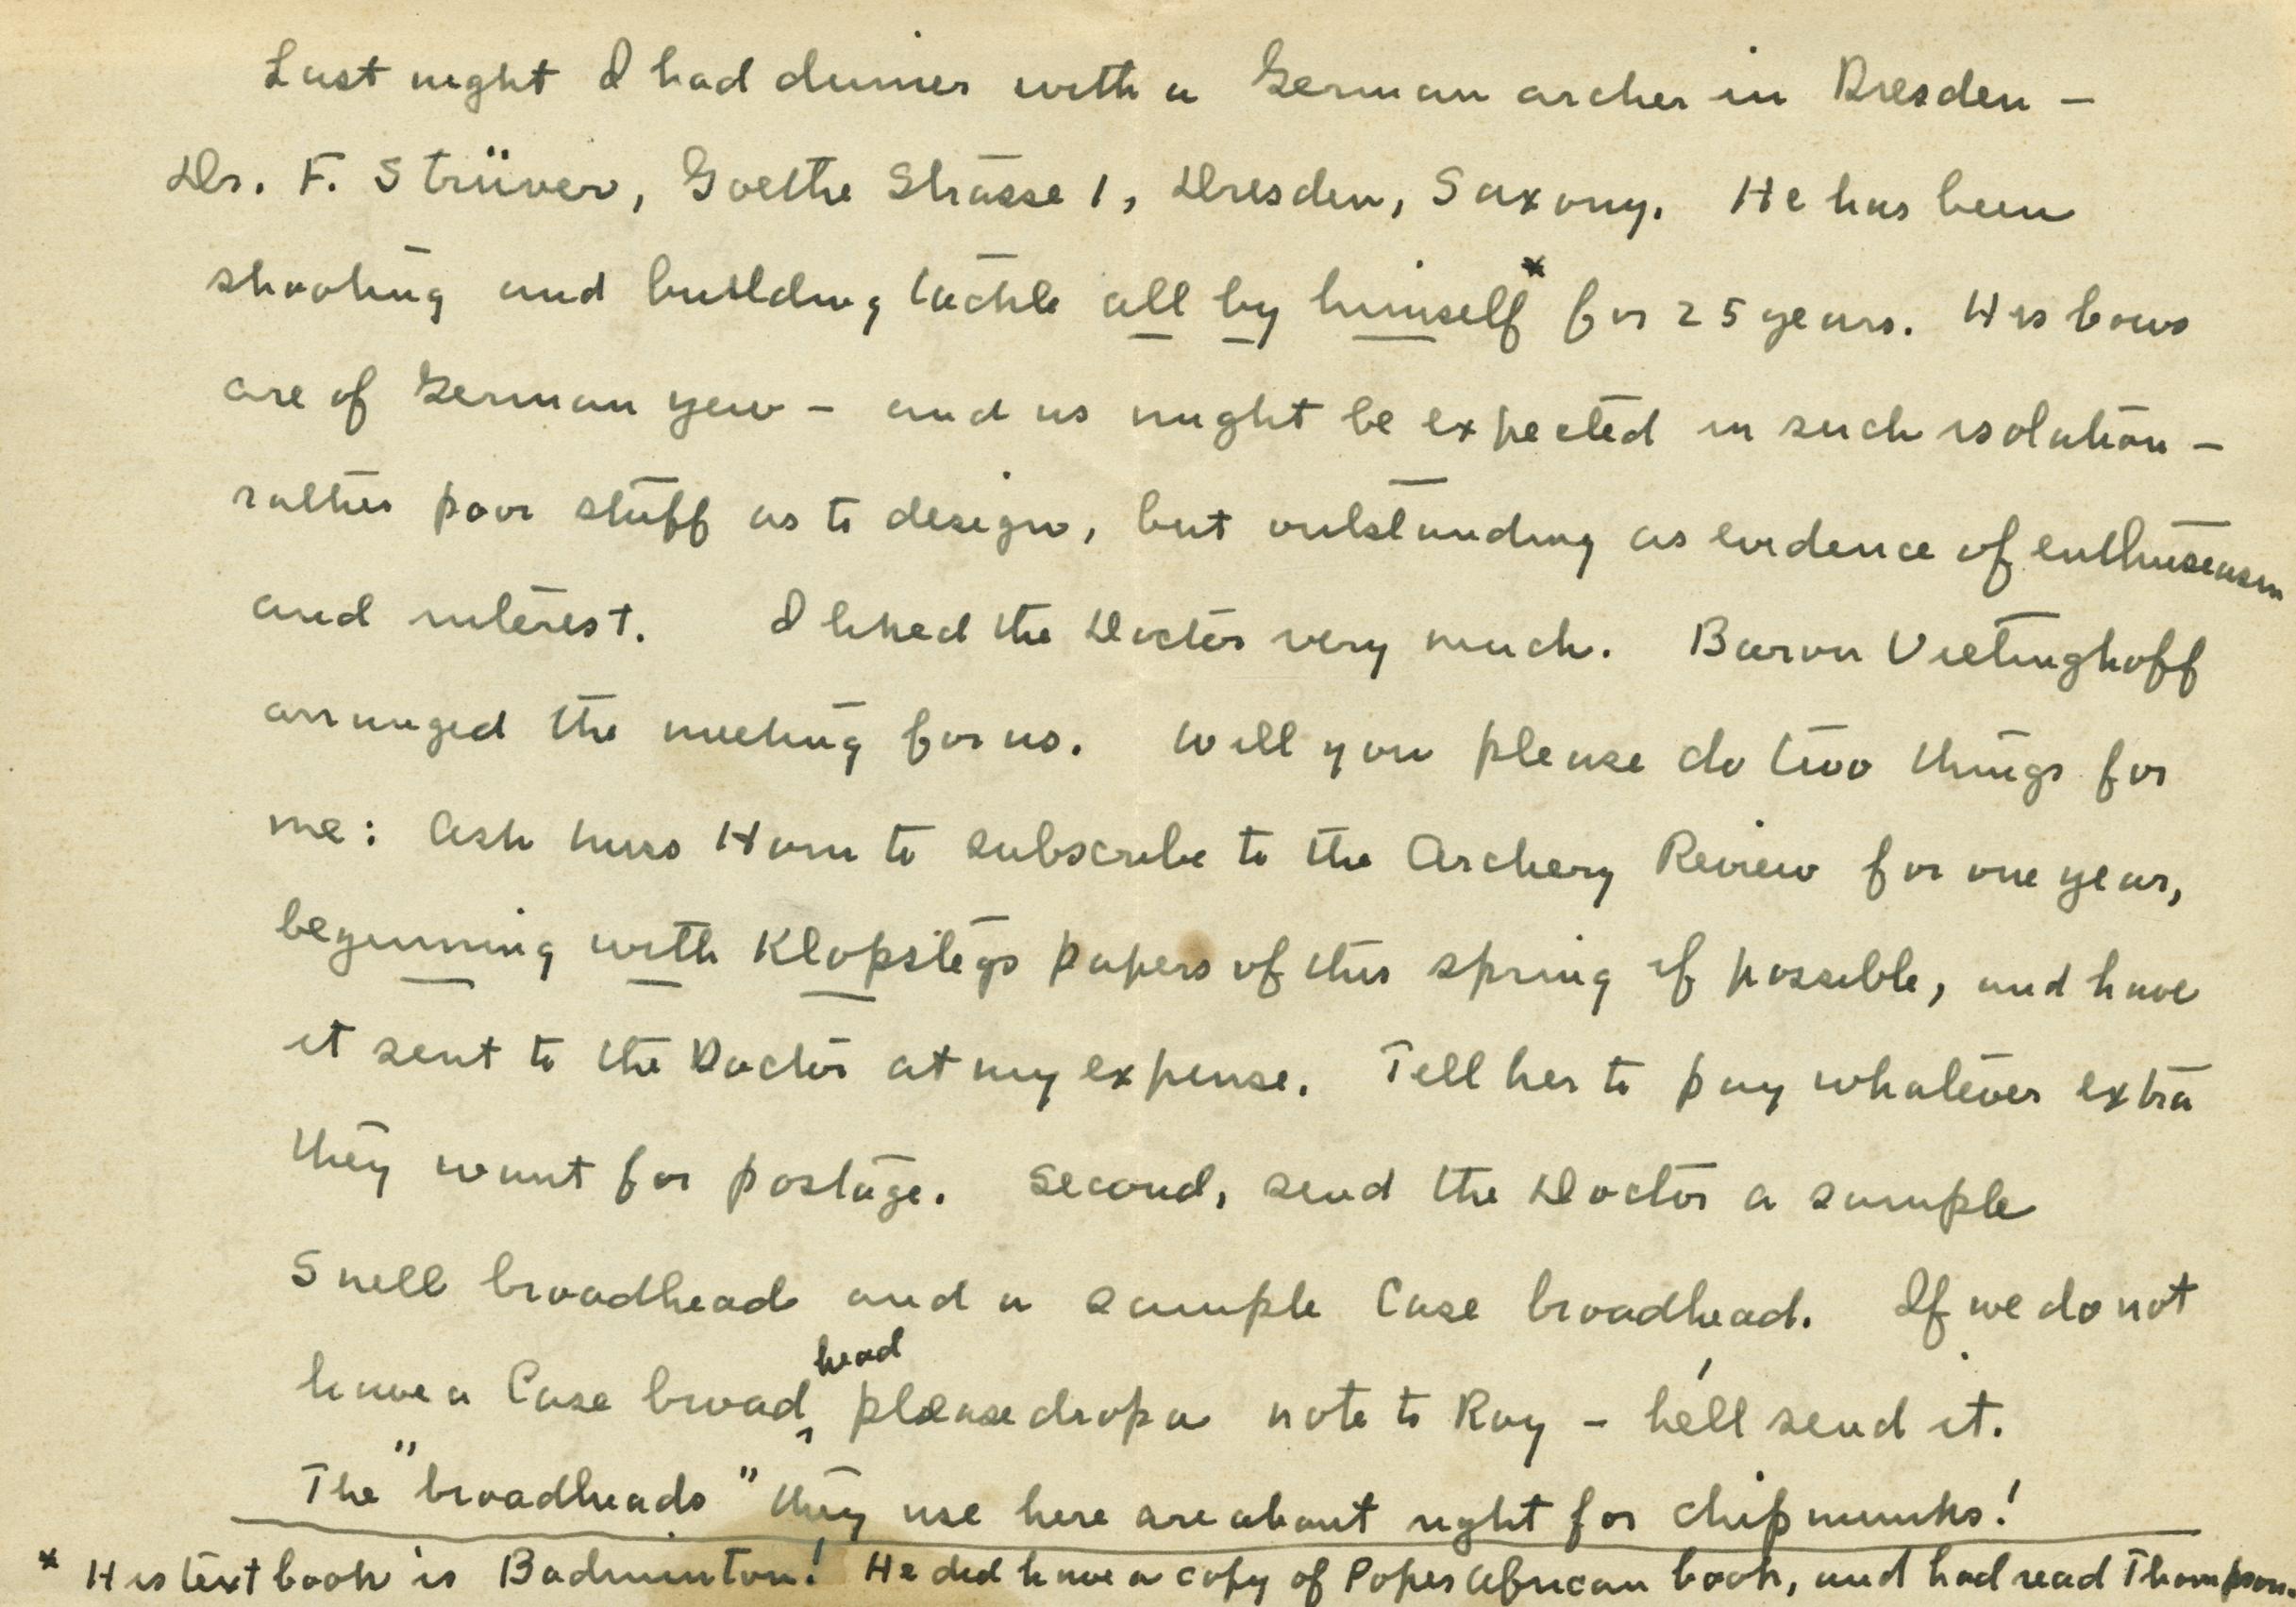 Last night I had dinner with a German archer in Dresden –
Dr. F. Strüver, Goethe Strasse 1, Dresden, Saxony. He has been
shooting and building tackle all by himself* for 25 years. His bows
are of German yew – and as might be expected in such isolation –
rather poor stuff as to design, but outstanding as evidence of enthusiasm
and interest. I liked the Doctor very much. Baron Vietinghoff
arranged the meeting for us. Will you please do two things for
me: Ask Miss Horn to subscribe to the Archery Review for one year,
beginning with Klopstegs papers of this spring if possible, and have
it sent to the Doctor at my expense. Tell her to pay whatever extra
they want for postage. Second, send the Doctor a sample
Snell broadhead and a sample Case broadhead. If we do not
have a Case broadhead please drop a note to Roy – he'll send it.
The "broadheads" they use here are about right for chipmunks!
* His text book is Badminton! He did have a copy of Popes African book, and had read Thompson.